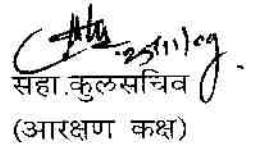 25/11/09
सहा.कुलसचिव
(आरक्षण कक्ष)